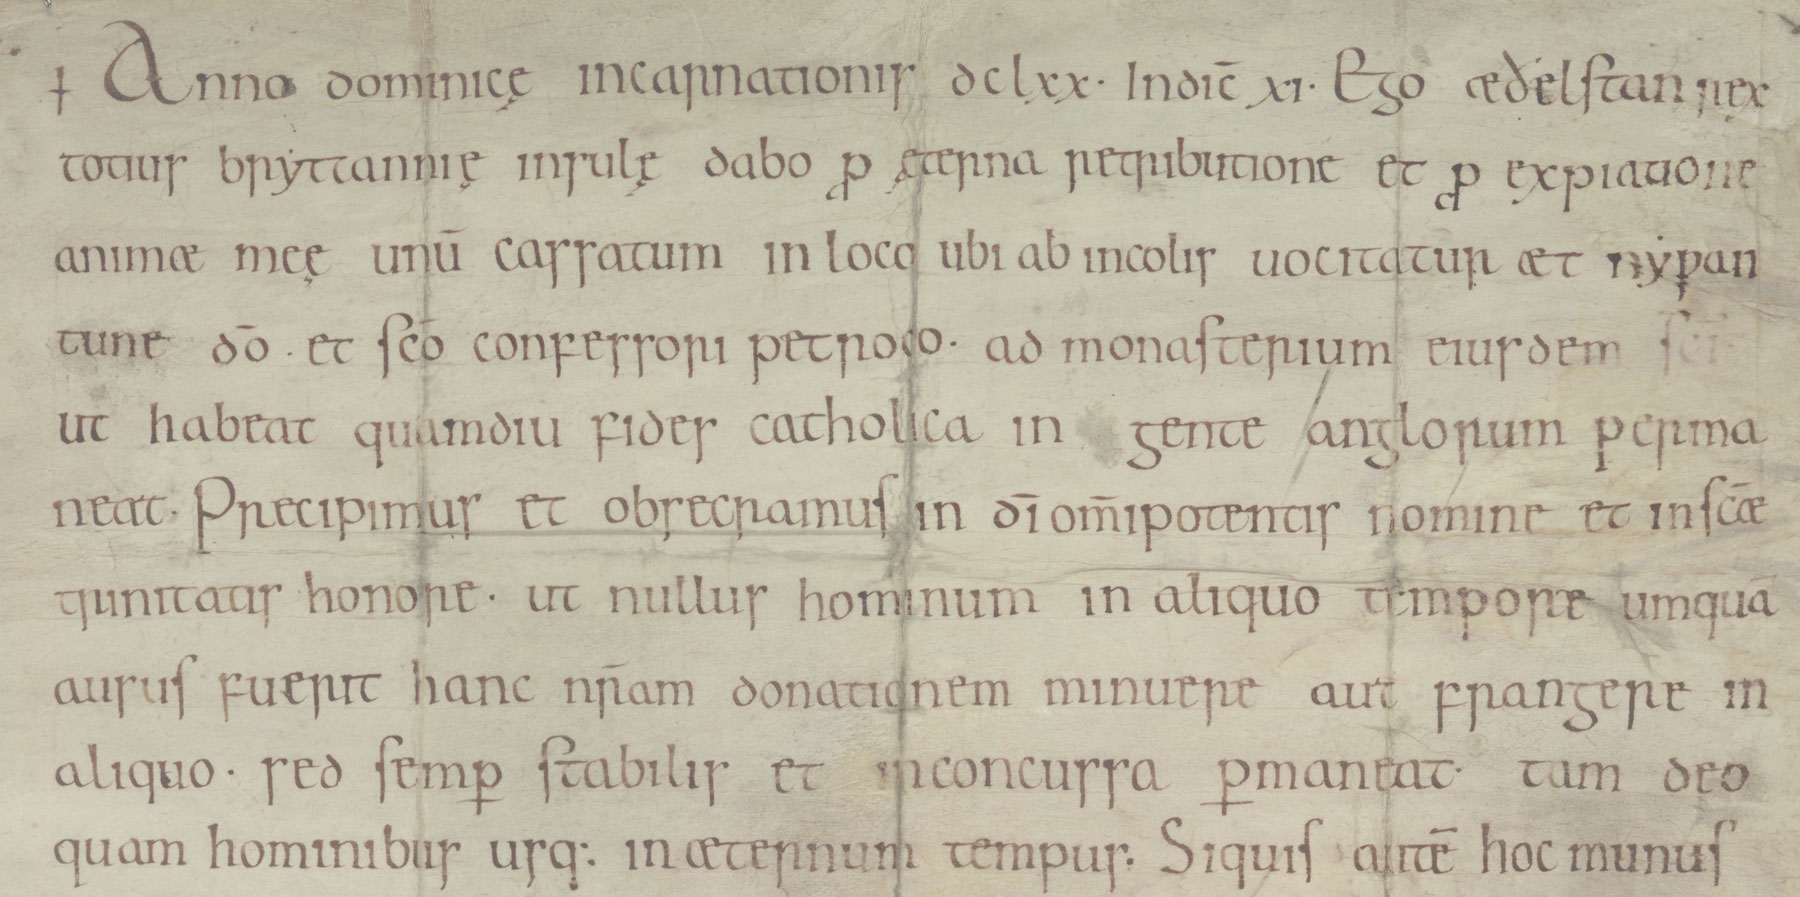 † Anno dominicę incarnationis dclxx. Indic̄ xi. Ego æðelstan rex
totius bryttannię insulę dabo ꝓ ęterna retributione et ꝓ expiatione
animæ meę unū cassatum in loco ubi ab incolis uocitatur æt nyƿan
tune dō. et sc̄o confessori petroco. ad monasterium eiusdem sc̄i.
ut habeat quamdiu fides catholica in gente anglorum perma
neat. Precipimus et obsecramus in dī om̄ipotentis nomine et in sc̄æ
trinitatis honore. ut nullus hominum in aliquo tempore umquā
ausus fuerit hanc nr̄am donationem minuere aut frangere in
aliquo. sed semꝑ stabilis et inconcussa ꝑmaneat. tam deo
quam hominibus usq: in æternum tempus. Siquis autē hoc munus